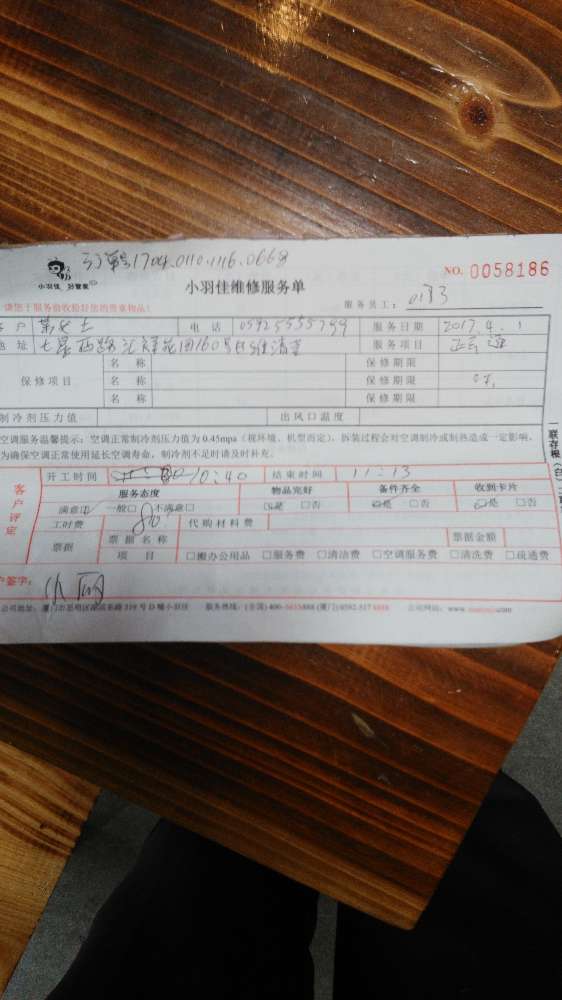 订单号1704.0110.1116.0668
小羽佳 好管家 小羽佳维修服务单 NO. 0058186
请您于服务验收检好您的贵重物品! 服务员工: 0133
客户 女士 电话 05925555799 服务日期 2017.4.1
地址 七星西路汇祥花园160号 服务项目
保修项目 名称 保修期限
名称 保修期限
名称 保修期限
制冷剂压力值 出风口温度
空调服务温馨提示: 空调正常制冷剂压力值为 0.45mpa (视环境、机型而定), 拆装过程会对空调制冷或制热造成一定影响,
为确保空调正常使用延长空调寿命, 制冷剂不足时请及时补充。
开工时间 10:40 结束时间 11:13
客户评定 服务态度 物品完好 备件齐全 收到卡片
满意□ 一般□ 不满意□ □是 □否 □是 □否 □是 □否
工时费 80 代购材料费
票据 票据名称 票据金额
项目 □搬办公用品 □服务费 □清洁费 □空调服务费 □清洗费 □疏通费
客户签字:
公司地址: 厦门市思明区 319 号 D 幢小羽佳 服务热线: (全国) 400- 888 (厦门) 0592-517 公司网站: www. .com
一联存根 (白)